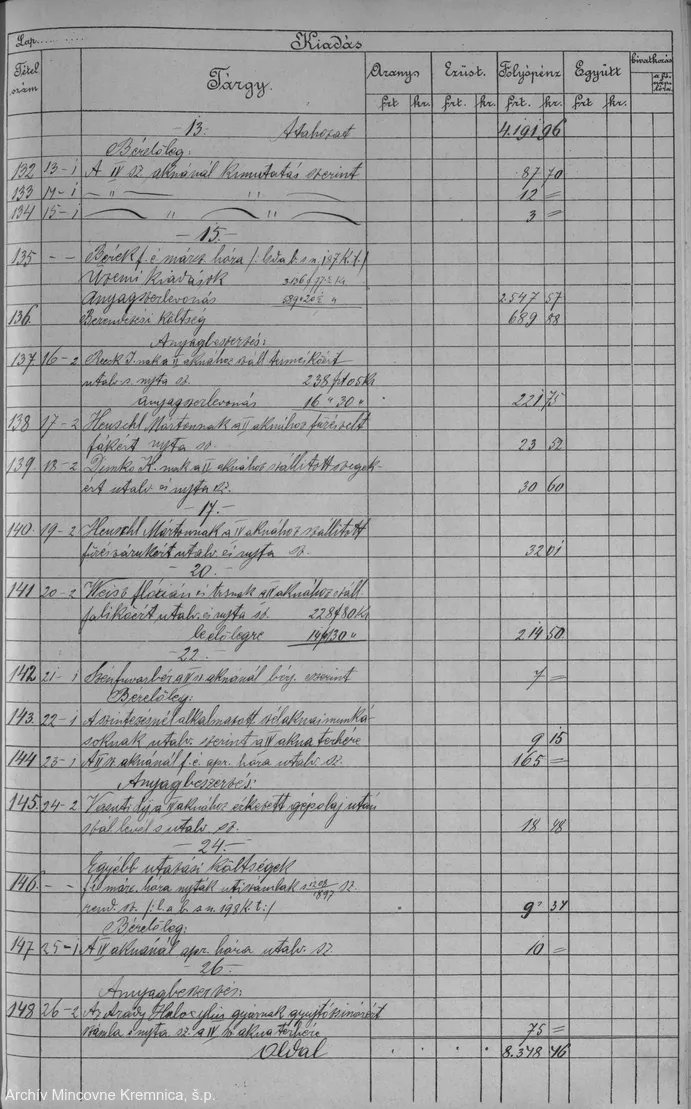 Lap
Kiadás
Tétel szám
Tárgy.
Arany
Ezüst.
Folyópénz
Együtt
hivatkozás
frt kr. frt. kr. frt. kr. frt kr.
— 13. Áthozat 4.191 96
Bérelőleg:
132 13-1 A IV sz. aknánál kimutatás szerint 87 70
133 14-1 — " — " — 12 =
134 15-1 " 3 =
— 15. —
135 - - Bérek f. é. márc. hóra
Üzemi kiadások
Anyagszerlevonás 2547 57
136. Berendezési költség 689 88
Anyagbeszerzés:
137 16-2
utalv. s nyta sz. 238 frt 05 Kr
anyagszerlevonás 16 " 30 " 221 75
138 17-2 Henschl Mártonnak a IV aknához
fákért nyta sz. 23 52
139 18-2 Dimko K. nak a IV aknához szállított szegek-
ért utalv. és nyta sz. 30 60
— 17. —
140 19-2 Henschl Mártonnak a IV aknához szállított
fürészárukért utalv. és nyta sz. 32 01
— 20. —
141 20-2 Weisz Flórián és trsnak a IV aknához száll.
falikőért utalv. és nyta sz. 228 f 80 Kr
le előlegre 14 f 30 " 214 50
— 22. —
142 21-1 a IV sz. aknánál bérj. szerint 7 =
Bérelőleg:
143. 22-1 A szintezésnél alkalmazott munká-
soknak utalv. szerint a IV akna terhére 9 15
144 23-1 A IV sz. aknánál f. é. apr. hóra utalv. sz. 165 =
Anyagbeszerzés:
145. 24-2 a IV aknához érkezett gépolaj után
szállevél s utalv. sz. 18 48
— 24. —
Egyébb utazási költségek
146. - - f. é. márc. hóra nyták utiszámlák
rend. sz. 9 34
Bérelőleg:
147 25-1 A IV aknánál apr. hóra utalv. sz. 10 =
— 26. —
Anyagbeszerzés:
148 26-2 Az Arady gyárnak
számla s nyta sz. a IV sz. akna terhére 75 =
Oldal 8.348 46
Archív Mincovne Kremnica, š.p.